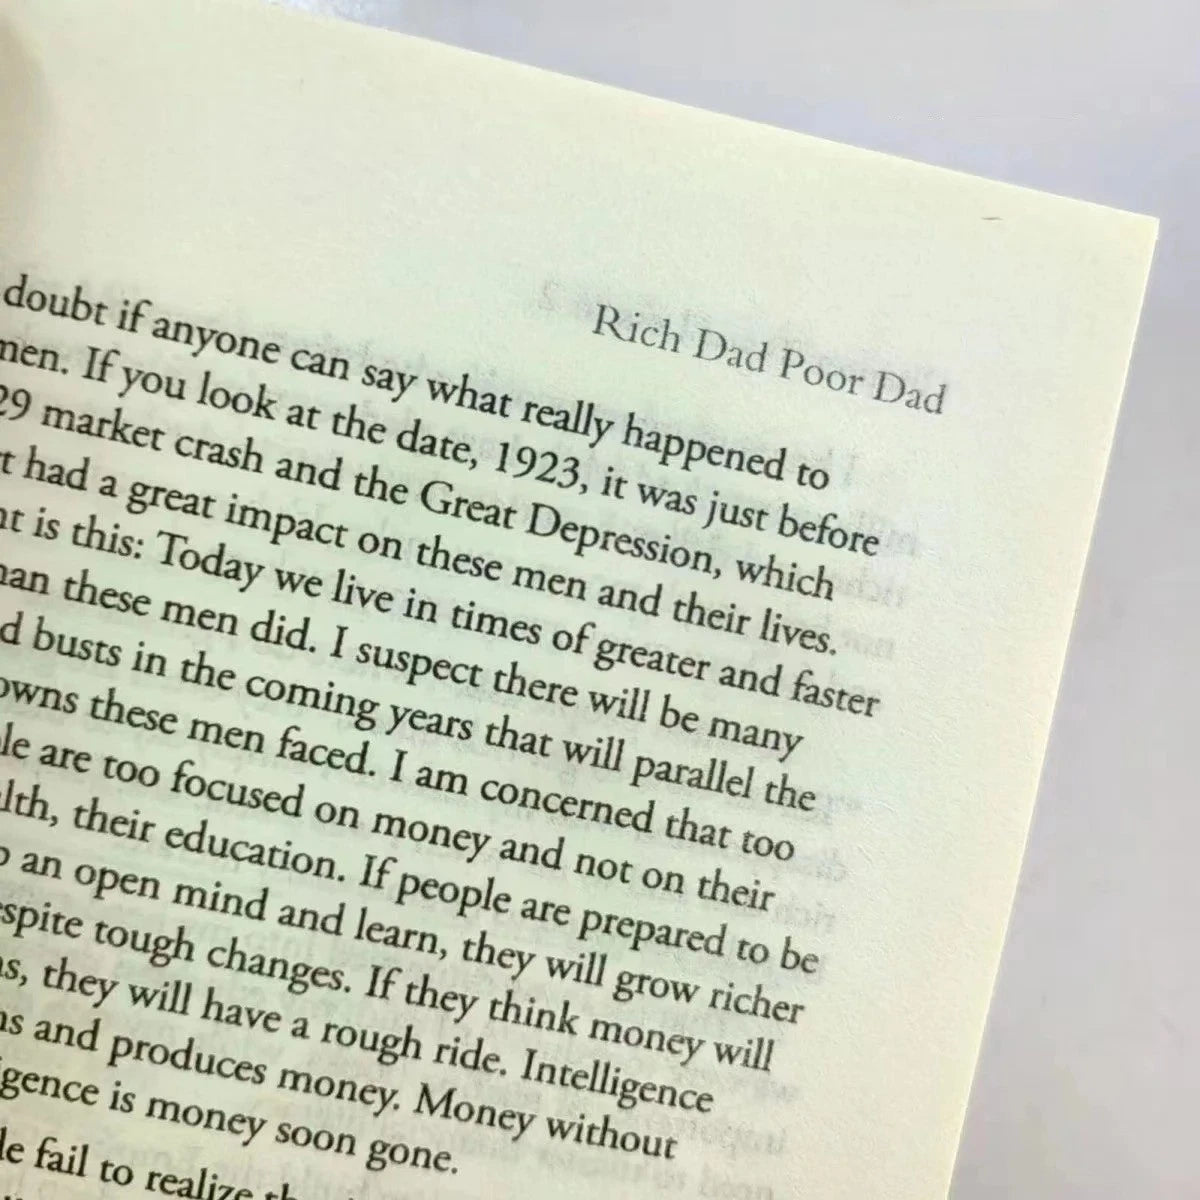 Rich Dad Poor Dad
doubt if anyone can say what really happened to
men. If you look at the date, 1923, it was just before
29 market crash and the Great Depression, which
t had a great impact on these men and their lives.
nt is this: Today we live in times of greater and faster
han these men did. I suspect there will be many
d busts in the coming years that will parallel the
owns these men faced. I am concerned that too
le are too focused on money and not on their
lth, their education. If people are prepared to be
p an open mind and learn, they will grow richer
espite tough changes. If they think money will
ms, they will have a rough ride. Intelligence
ms and produces money. Money without
igence is money soon gone.
le fail to realize